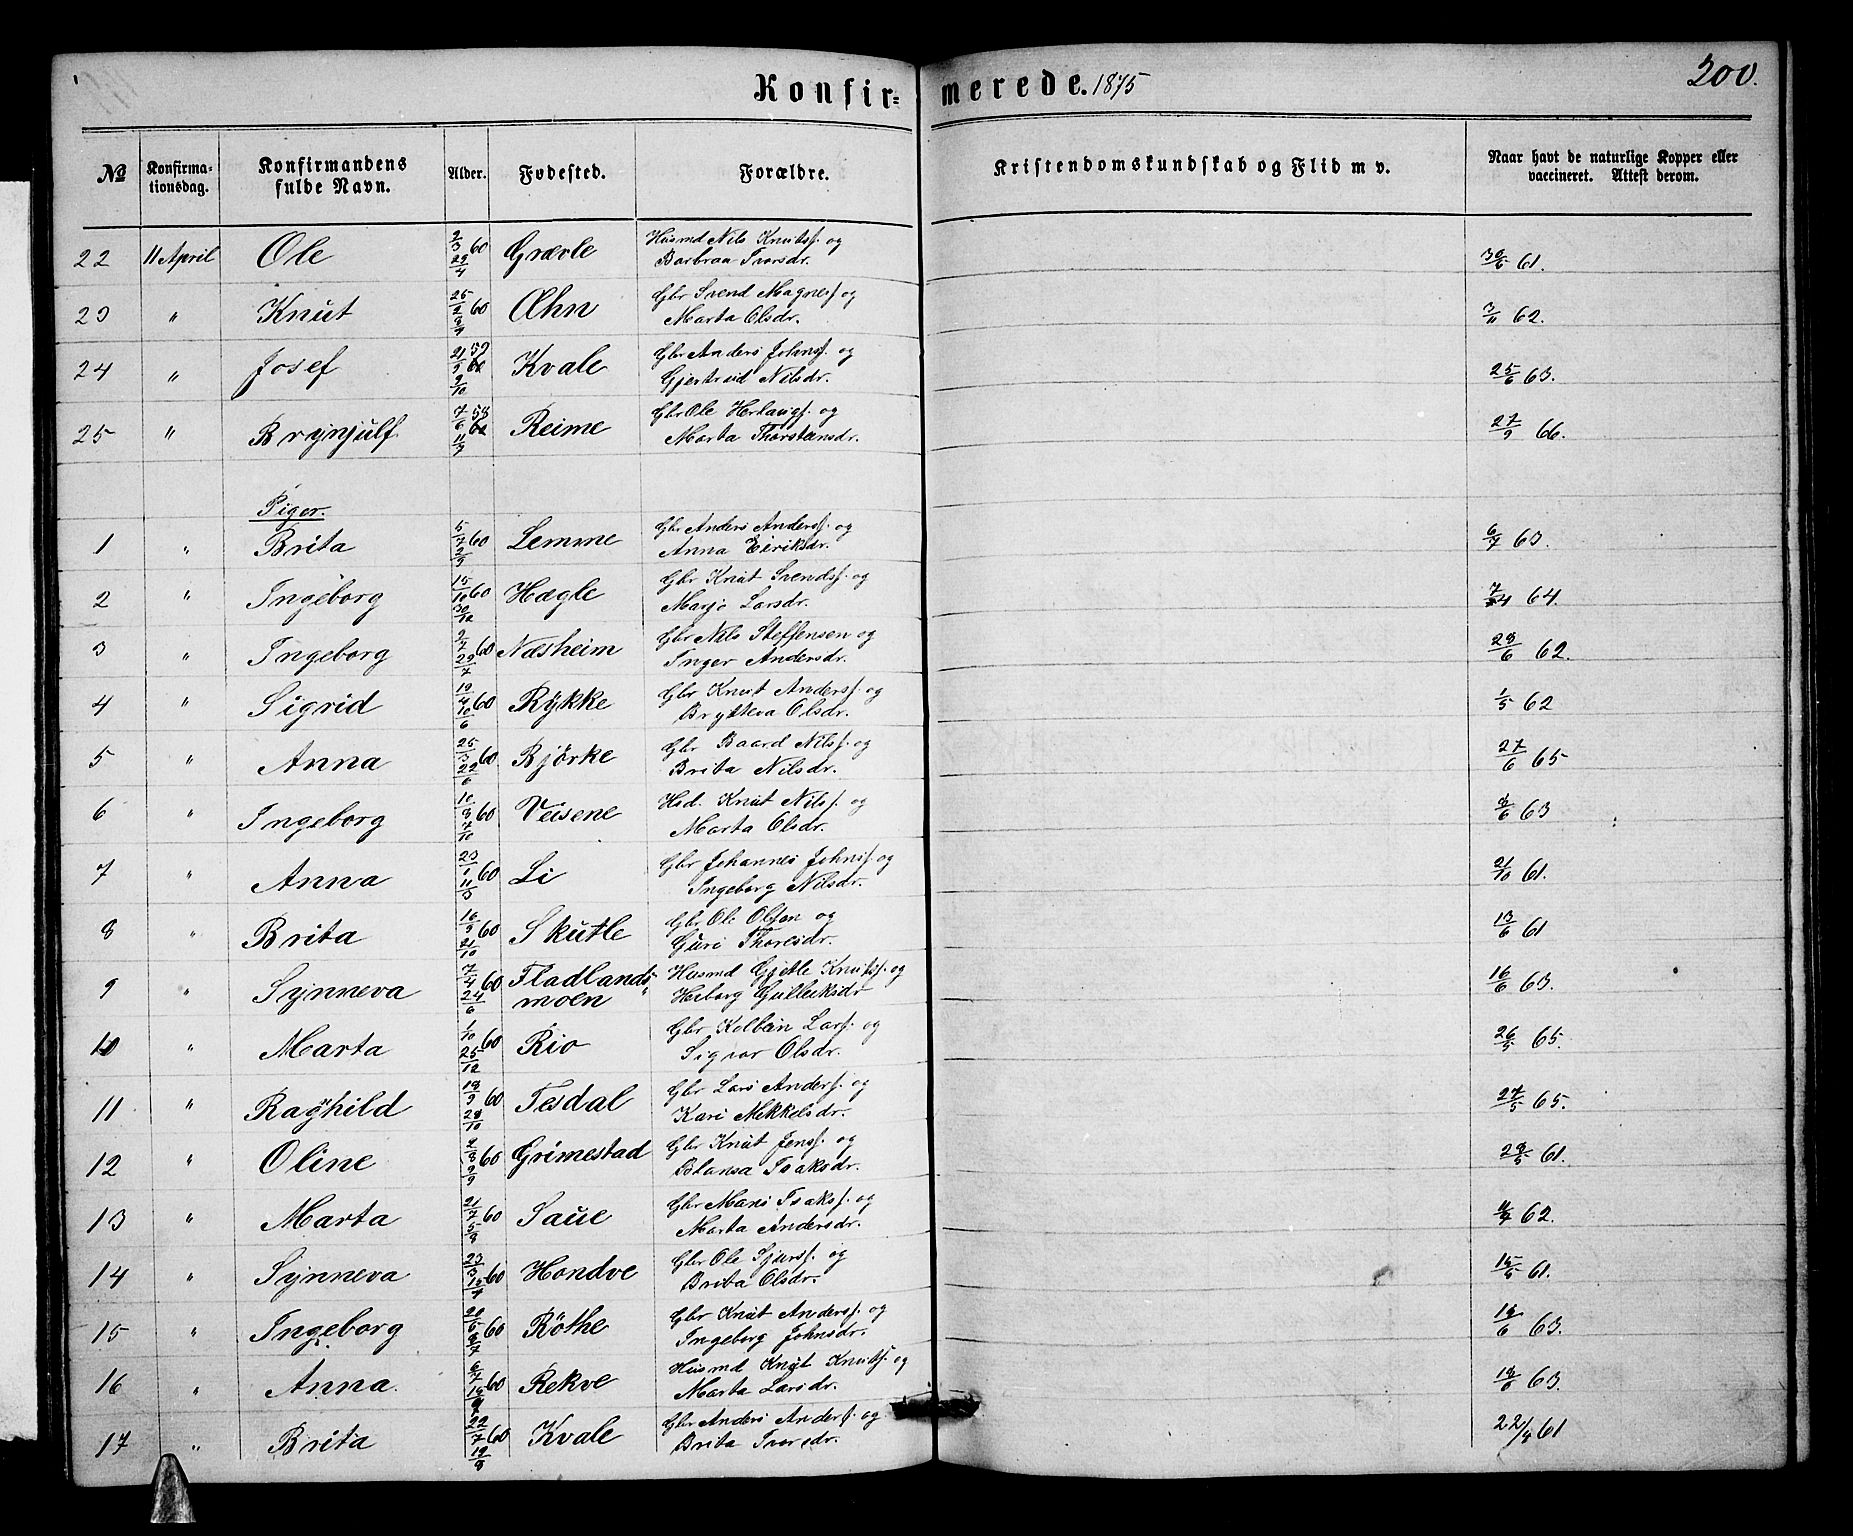 Konfir=merede. 1875
200.
№ Konfirma-tionsdag. Konfirmandens fulde Navn. Alder. Fødested. Forældre. Kristendomskundskab og Flid m v. Naar havt de naturlige Kopper eller vaccineret. Attest derom.
22 11 April Ole 2/3 60 29/4 Grævle Husmd Nils Knutsf. og Barbraa Ivarsdr. 30/6 61.
23 " Knut 60 Æhn Gbr Svend Magnesf og Marta Olsdr. 3/11 62.
24 " Josef 21/9 59 9/10 Kvale Gbr Anders Johnsf. og Gjertrud Nilsdr. 25/6 63.
25 " Brynjulf 7/6 58 Reime Gbr Ole Herlaugf. og Marta Thorsteinsdr. 27/9 66.
Piger.
1 " Brita 5/7 60 Lemme Gbr Anders Andersf. og Anna Eiriksdr. 6/7 63.
2 " Ingeborg 15/10 60 30/12 Hægle Gbr Knut Svendsf. og Marjo Larsdr. 64.
3 " Ingeborg 2/7 60 22/7 Næsheim Gbr Nils Steffensen og Inger Andersdr. 23/6 62.
4 " Sigrid 19/4 60 10/6 Rykke Gbr Knut Andersf. og Brytteva Olsdr. 1/5 62
5 " Anna 25/3 60 22/6 Bjørke Gbr Baard Nilsf. og Brita Nilsdr. 27/6 65
6 " Ingeborg 10/8 60 7/10 Veisene Hsd. Knut Nilsf og Marta Olsdr. 63
7 " Anna 23/1 60 11/3 Li Gbr Johannes Johnsf og Ingeborg Nilsdr. 21/10 61.
8 " Brita 16/9 60 21/10 Skutle Gbr Ole Olsen og Guri Thoresdr. 13/6 61
9 " Synneva 7/4 60 24/6 Fladlands-moen Husmd Gjetle Knutsf. og Herborg Gulleiksdr 16/6 63.
10 " Marta 1/10 60 25/12 Rio Gbr Kolbein Larsf. og Sigvor Olsdr. 26/5 65.
11 " Raghild 19/9 60 28/10 Tesdal Gbr Lars Andersf. og Kari Mikkelsdr. 27/5 65.
12 " Oline 2/8 60 2/9 Grimestad Gbr Knut Jensf. og Blansa Isaksdr. 61.
13 " Marta 21/7 60 5/8 Saue Gbr Mons Isaksf. og Marta Andersdr. 62.
14 " Synneva 23/3 60 Hondve Gbr Ole Sjursf. og Brita Olsdr. 15/5 61.
15 " Ingeborg 60 Röthe Gbr Knut Andersf. og Ingeborg Johnsdr. 63.
16 " Anna. 60 Rekve Husmd Knut Knutsf. og Marta Larsdr. 63.
17 " Brita 22/7 60 19/8 Kvale Gbr Anders Andersf. og Brita Ivarsdr. 22/8 61